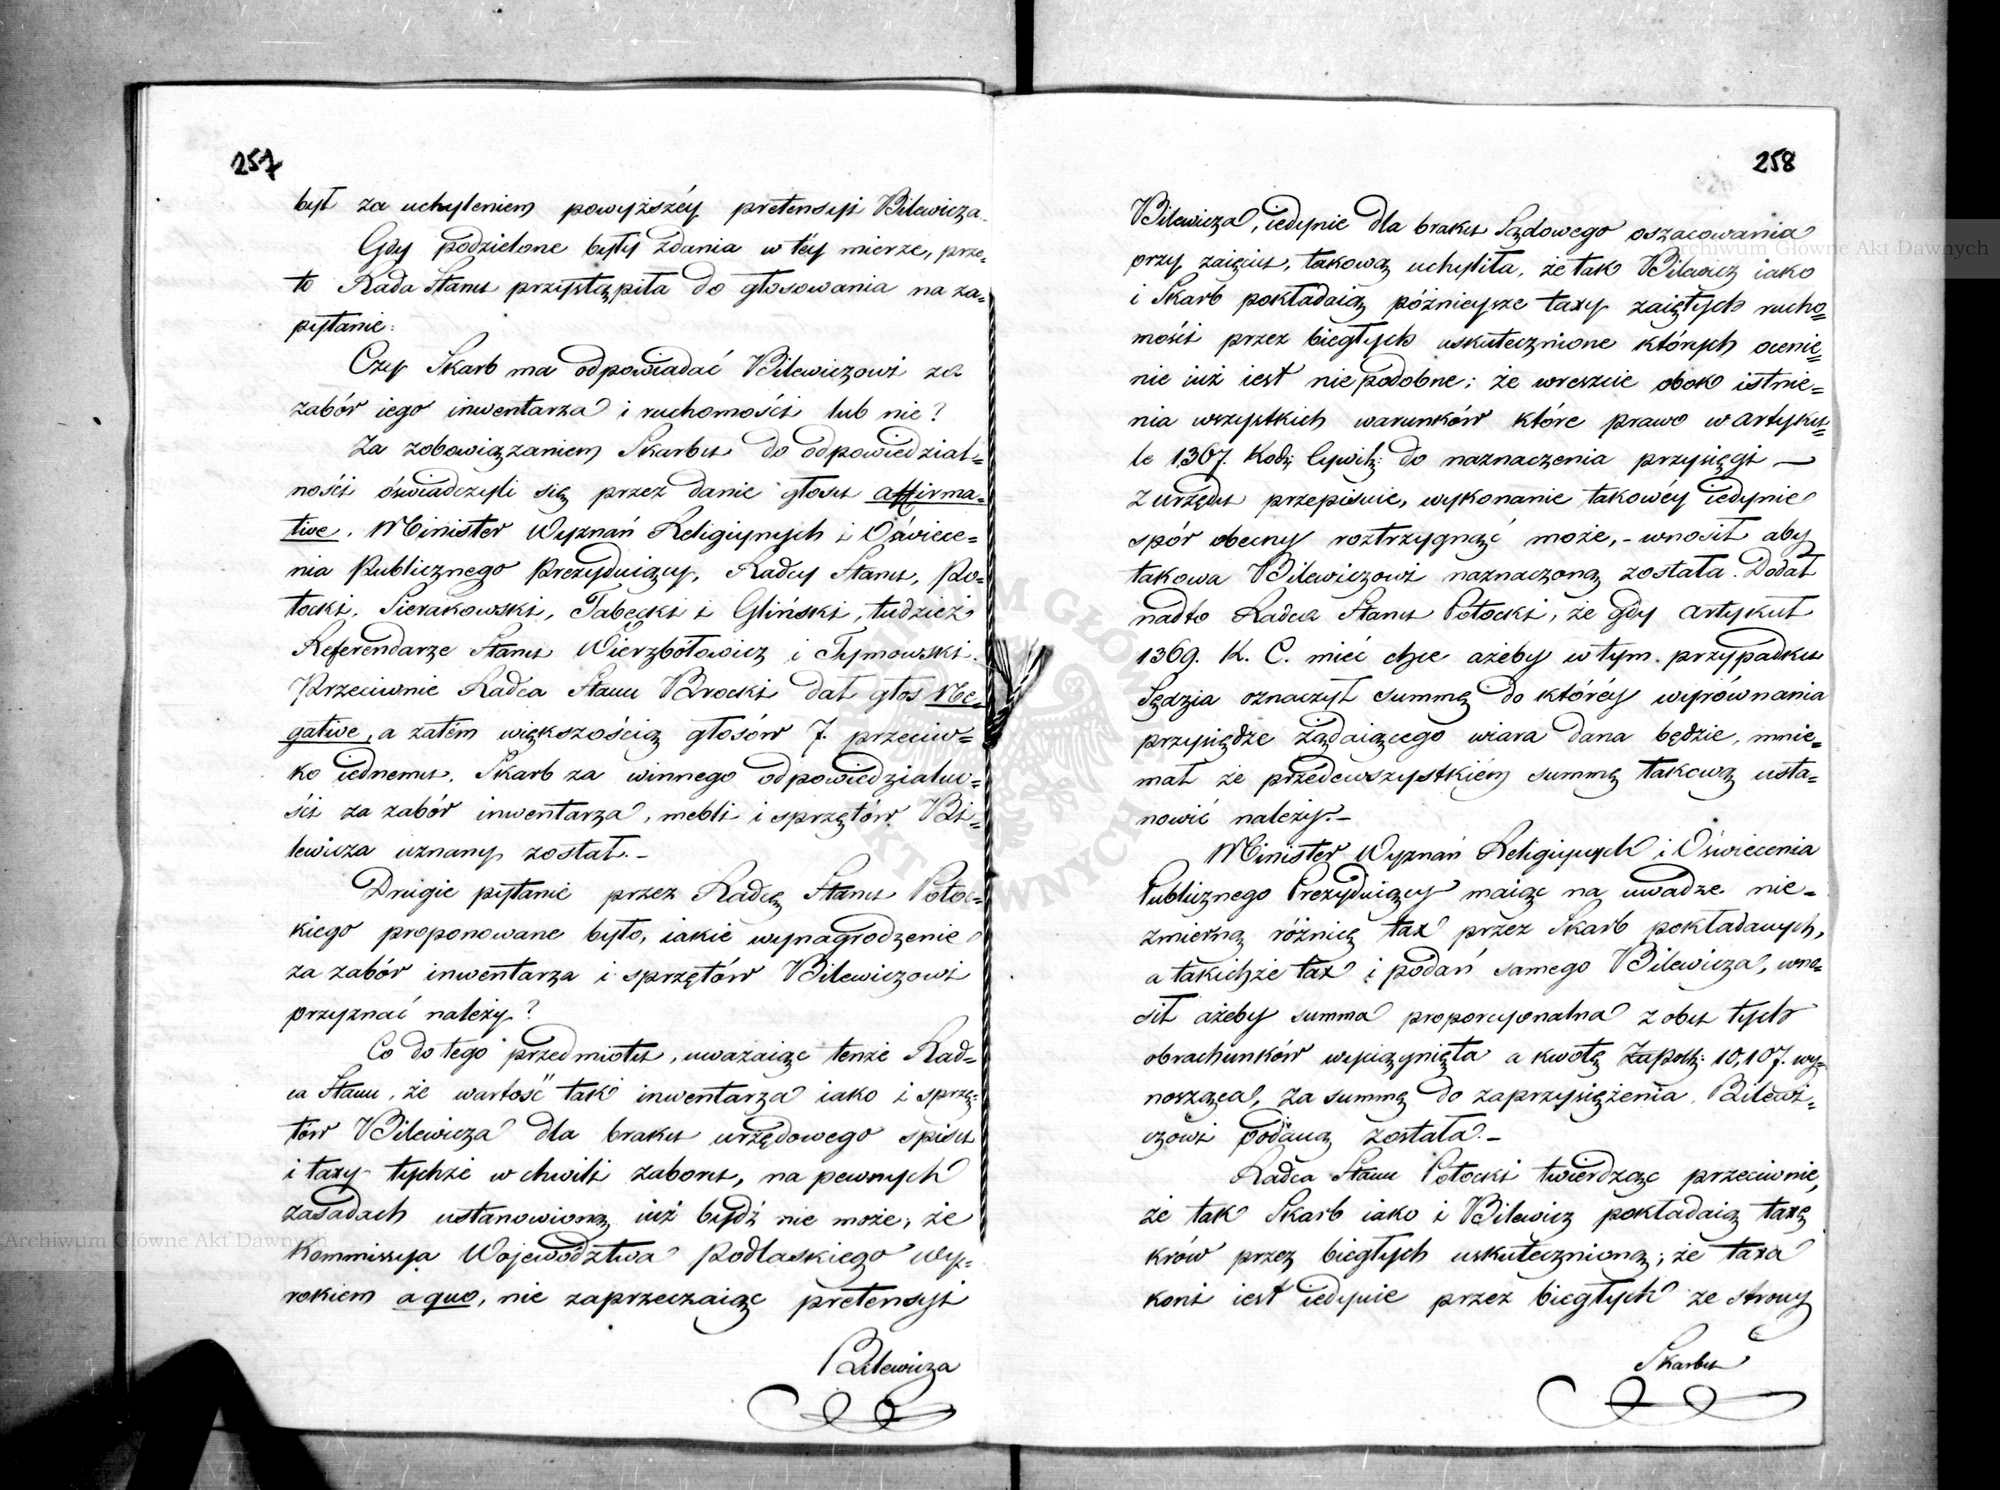 257
był za uchyleniem powyższéy pretensyi Bilewicza.
Gdy podzielone były zdania w téy mierze, prze=
to Rada Stanu przystąpiła do głosowania na za=
pytanie:
Czy Skarb ma odpowiadać Bilewiczowi za
zabór iego inwentarza i ruchomości lub nie?
Za zobowiązaniem Skarbu do odpowiedzial=
ności oświadczyli się przez danie głosu affirma=
tive. Minister Wyznań Religiynych i Oświece=
nia Publicznego Prezyduiący, Radcy Stanu, Po=
tocki, Sierakowski, Tabęcki i Gliński, tudzież
Referendarze Stanu Wierzbołowicz i Tymowski.
Przeciwnie Radca Stanu Brocki dał głos Ne=
gative, a zatém większością głosów 7. przeciw=
ko iednemu, Skarb za winnego odpowiedzialno=
ści za zabór inwentarza, mebli i sprzętów Bi=
lewicza uznany został.-
Drugie pytanie przez Radcę Stanu Potoc=
kiego proponowane było, iakie wynagrodzenie
za zabór inwentarza i sprzętów Bilewiczowi
przyznać należy?
Co do tego przedmiotu, uważaiąc tenże Rad=
ca Stanu, że wartość tak inwentarza iako i sprzę=
tów Bilewicza dla braku urzędowego spisu
i taxy tychże w chwili zaboru, na pewnych
zasadach ustanowioną iuż bydź nie może, że
Kommissya Województwa Podlaskiego wy=
rokiem a quo, nie zaprzeczaiąc pretensyi
Bilewicza
258
Bilewicza, iedynie dla braku Sądowego oszacowania
przy zaięciu, takową uchyliła, że tak Bilewicz iako
i Skarb pokładaią późnieysze taxy zaiętych rucho=
mości przez biegłych uskutecznione których ocenie=
nie iuż iest niepodobne; że wreszcie obok istnie=
nia wszystkich warunków które prawo w artyku=
le 1367. Kod: Cywil: do naznaczenia przysięgi —
z urzędu przepisuie, wykonanie takowéy iedynie
spór obecny roztrzygnąć może, - wnosił aby
takowa Bilewiczowi naznaczoną została. Dodał
nadto Radca Stanu Potocki, że gdy artykuł
1369. K. C. mieć chce ażeby w tym przypadku
Sędzia oznaczył summę do któréy wyrównania
przysiędze żądaiącego wiara dana będzie, mnie=
mał że przedewszystkiém summę takową usta=
nowić należy.-
Minister Wyznań Religiynych i Oświecenia
Publicznego Prezyduiący maiąc na uwadze nie=
zmierną różnicę tax przez Skarb pokładanych,
a takichże tax i podań samego Bilewicza, wno=
sił ażeby summa proporcyonalna z obu tych
obrachunków wyciągnięta a kwotę Złpolk: 10,107. wy=
nosząca, za summę do zaprzysiężenia Bilewi=
czowi podaną została.-
Radca Stanu Potocki twierdząc przeciwnie,
że tak Skarb iako i Bilewicz pokładaią taxę
krów przez biegłych uskutecznioną; że taxa
koni iest iedynie przez biegłych ze strony
Skarbu
Archiwum Główne Akt Dawnych
Archiwum Główne Akt Dawnych